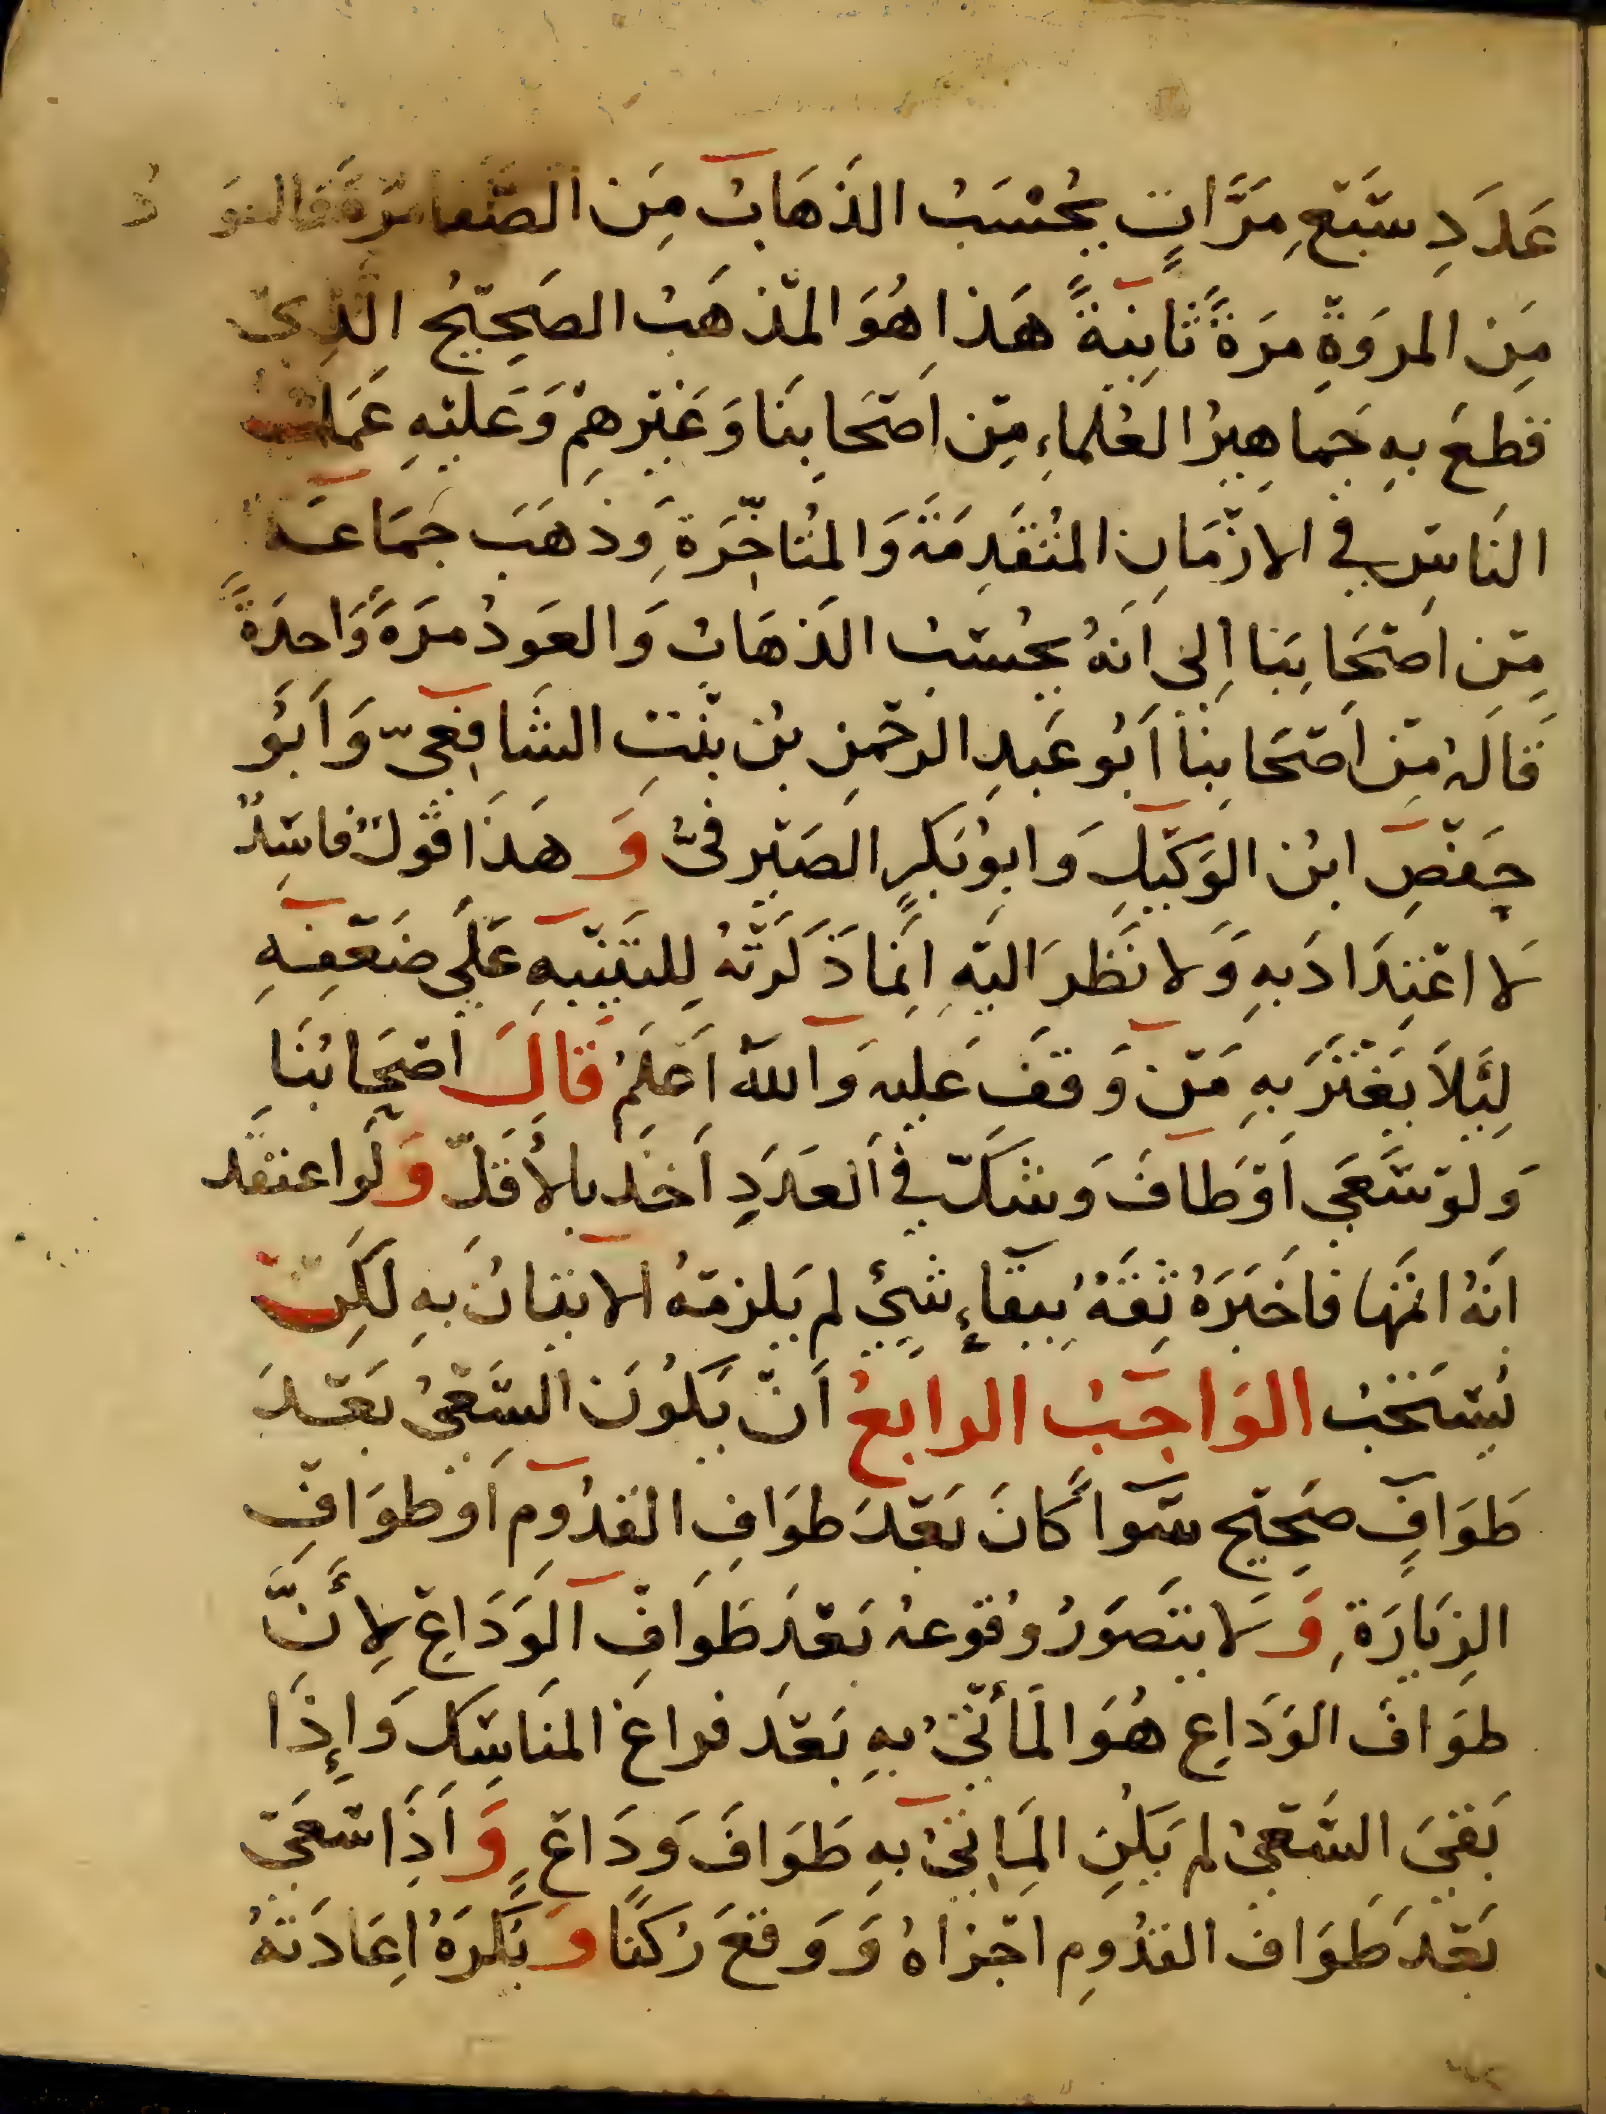 عَدَدِ سَبْعِ مَرَّاتٍ يُحْسَبُ الذَهَابُ مِنَ الصَّفا مَرَّةً وَالعَوْدُ
مِنَ المروَةِ مرَةً ثَانِيَةً هَذا هُوَ المَذهَبُ الصَحِيحُ الَّذِيْ
قطعَ بهِ جَماهِيرُ العُلماءِ مِن اَصحَابِنَا وَغَيْرِهِمْ وَعَليْهِ عَمَلُ
النَاسِ في الازْمَانِ المُتقَدِمَةِ وَالمُتأخِّرَةِ وَذهَبَ جمَاعَة
مِن اصْحَابِنا اِلى اَنهُ يحُسَبُ الذَهَابُ وَالعَودُ مرَةً وَاحدَةً
قَالهُ مِن اَصحَابِنا اَبُو عَبدِ الرحمٰنِ بنُ بِنْتِ الشَافِعِيّ وَاَبُو
حَفصِ ابنُ الوَكَيلِ وَابوُبَكرٍ الصَيْرفىُّ وَ هَذَا قولٌ فاسِدٌ
لَا اعْتِدَادَ بهِ وَلا نَظَرَ اليْهِ اِنمَا ذَكَرتُهُ لِلتَنْبِيهِ عَلَى ضَعْفِهِ
لِئَلاَ يَغْتَرَ بهِ مَن وَقفَ عَليه وَاللهُ اَعْلَمُ قَالَ اصْحَابُنَا
وَلوْ سَعَى اَوْ طَافَ وَشكّ في العَدَدِ اَخذ بالأقَلّ وَلَو اعتقد
اَنهُ اتمَّهَا فاخَبَرَهُ ثِقَةٌ بِبَقَاءِ شَيْءٍ لم يَلزمْهُ الاتيَانُ بهِ لكَِن
يُستَحَبُ الوَاجَبُ الرابعُ اَنْ يَكُونَ السَعْيُ بَعْدَ
طَوَافٍ صَحِيْحٍ سَوَاً كانَ بَعْدَ طوَافِ القدُومِ اَوْ طوَافِ
الزِيَارَةِ وَلَا يتَصَوَرُ وُقوعهُ بَعْدَ طَوافِ الوَدَاعِ لِأَنَّ
طوَافَ الوَدَاعِ هُوَ المَأْتِيُ بهِ بَعْدَ فراغ المنَاسِكِ وَإِذَا
بَقيَ السَّعْيُ لم يَكُنِ المَاتِيُ بهِ طَوَافَ وَدَاعٍ وَاِذَا سَعَى
بَعْدَ طَوَافِ القدُومِ اجْزاهُ وَوَقعَ رُكنًا وَيَكرَهُ اِعَادَتهُ